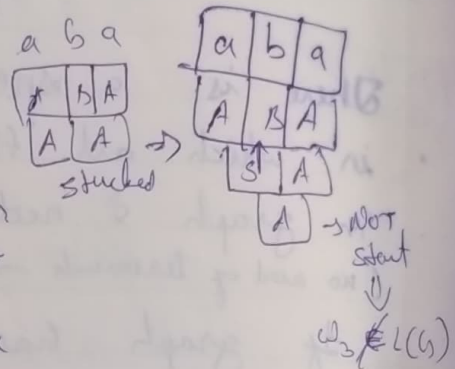 a b a
A B A
A A
stucked →
a b a
A B A
S A
A → NOT
start
⇓
ω₃ ∉ L(G)